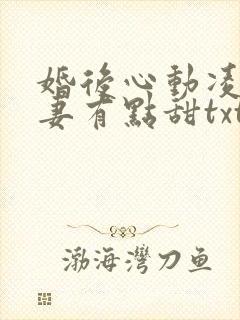 婚後心動凌
妻有點甜txt
渤海灣刀鱼